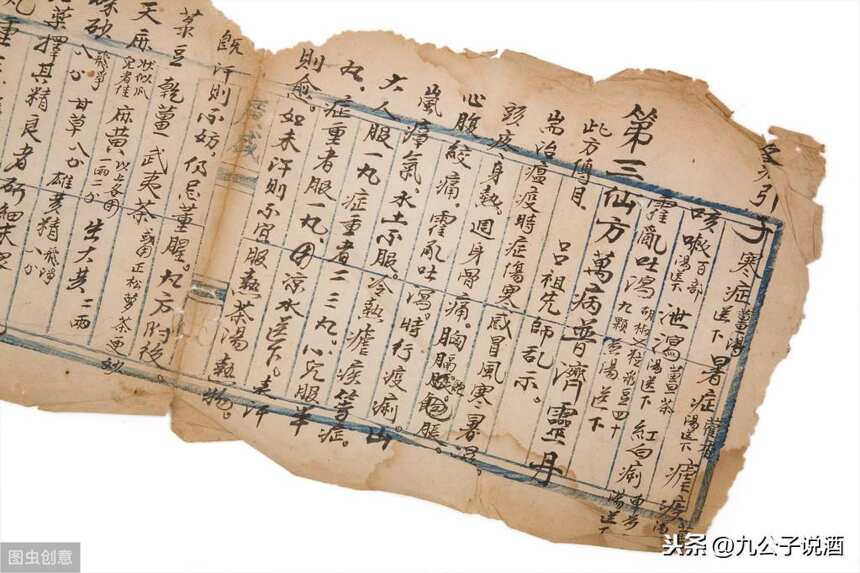 引子 寒症 薑湯送下 暑症 藿香湯送下 瘧疾
咳嗽 百部湯送下 泄瀉 薑茶湯送下 紅白痢 車前湯送下
霍亂吐瀉 胡椒 湯送下 豆四十九顆煎湯送下
第三仙方萬病普濟靈丹
此方傳自 呂祖先師乩示。
耑治瘟疫時症傷寒感冒風寒暑濕。
頭疼身熱。週身骨痛。胸膈飽脹。
心腹絞痛。霍亂吐瀉。時行疫痢。山
嵐瘴氣。水土不服。冷熱瘧疾等症。
大人服一丸症重者二三丸。小兒服半
丸、症重者服一丸、用凉水送下。蓋汗
則愈。如未汗則不宜服熱茶湯熱物。
既汗則不妨。仍忌葷腥。丸方附後
菉豆 乾薑 武夷茶 或用正松萝茶更妙
天麻 狀似瓜 者佳 麻黃 以上各用一兩二分
砂 飛淨 八分 甘草 八分 雄黃精 飛淨八分 生大黃 二兩
藥擇其精良者研細末
重
頭条 @九公子说酒
图虫创意